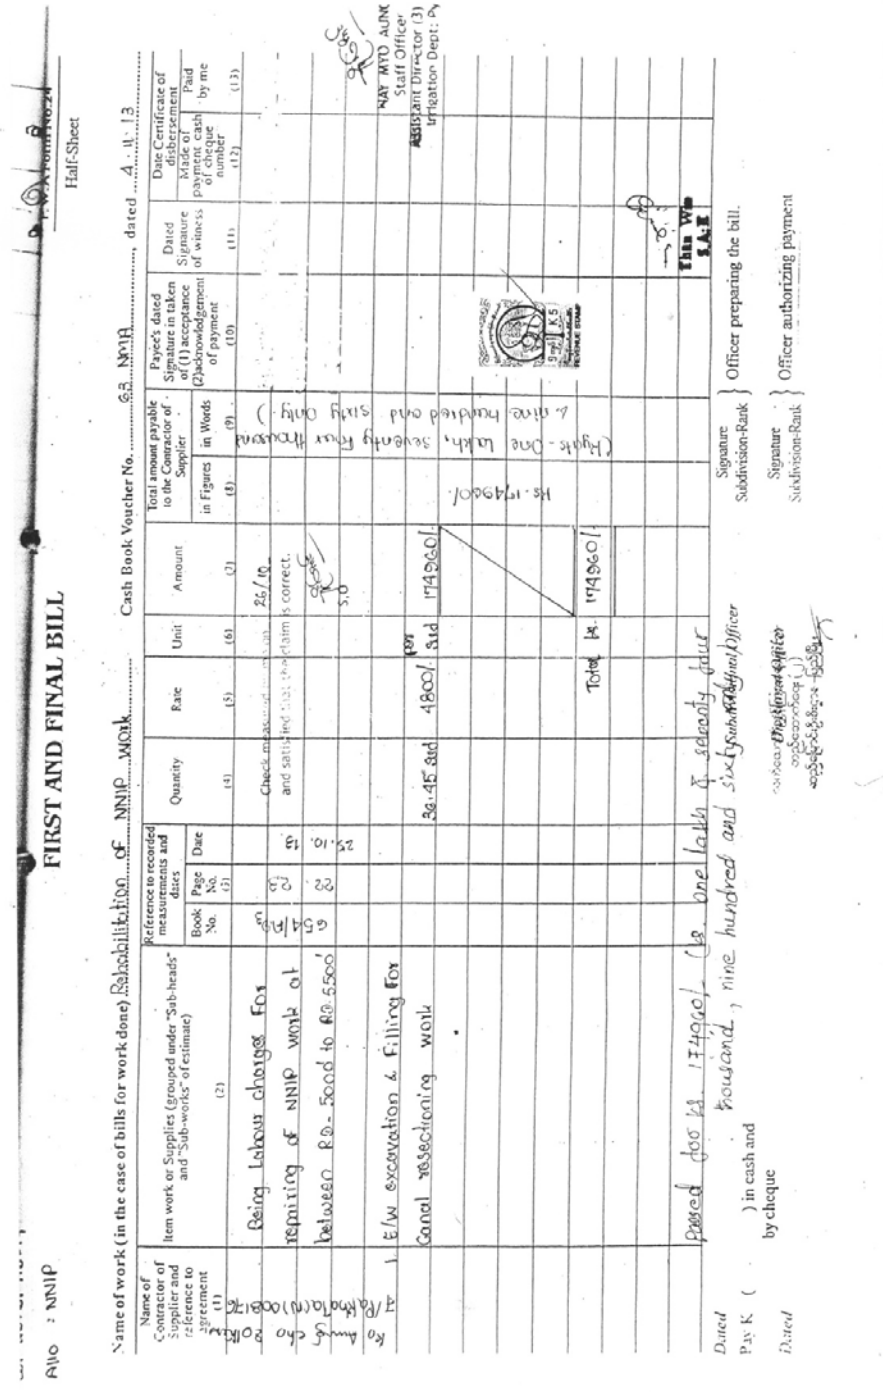 Half-Sheet
Allo : NNIP
FIRST AND FINAL BILL
Name of work ( in the case of bills for work done) Rehabilitation of NNIP work Cash Book Voucher No. 63 NMA, dated 4.11.13
Name of Contractor of Supplier and reference to agreement
(1)
Item work or Supplies (grouped under "Sub-heads" and "Sub-works" of estimate)
(2)
Reference to recorded measurements and dates
Book No.
Page No.
(3)
Date
Quantity
(4)
Rate
(5)
Unit
(6)
Amount
(7)
Total amount payable to the Contractor of Supplier
in Figures
(8)
in Words
(9)
Payee's dated Signature in taken of (1) acceptance (2)acknowledgement of payment
(10)
Dated Signature of witness
(11)
Date Certificate of disbersement
Made of payment cash of cheque number
(12)
Paid by me
(13)
Being Labour charges For
repairing of NNIP work at
between RD-5000 to RD-5500'
22
25.10.
13
Check measured
26/10
and satisfied that the claim is correct.
S.O
1. E/W excavation & Filling For
Canal resectioning work
36.45 std 4800/- per std 174960/-
Total ks. 174960/-
ks. 174960/-
(Kyats - One lakh, seventy four thousand
& nine hundred and sixty only.)
K 5
REVENUE STAMP
NAY MYO AUNG
Staff Officer
Assistant Director (3)
Irrigation Dept:
Than Win
S.A.E
Passed for ks. 174960/- (ks. one lakh & seventy four
thousand, nine hundred and sixty
Dated
Pay K ( ) in cash and
by cheque
Dated
Signature
Subdivision-Rank } Officer preparing the bill.
Signature
Subdivision-Rank } Officer authorizing payment